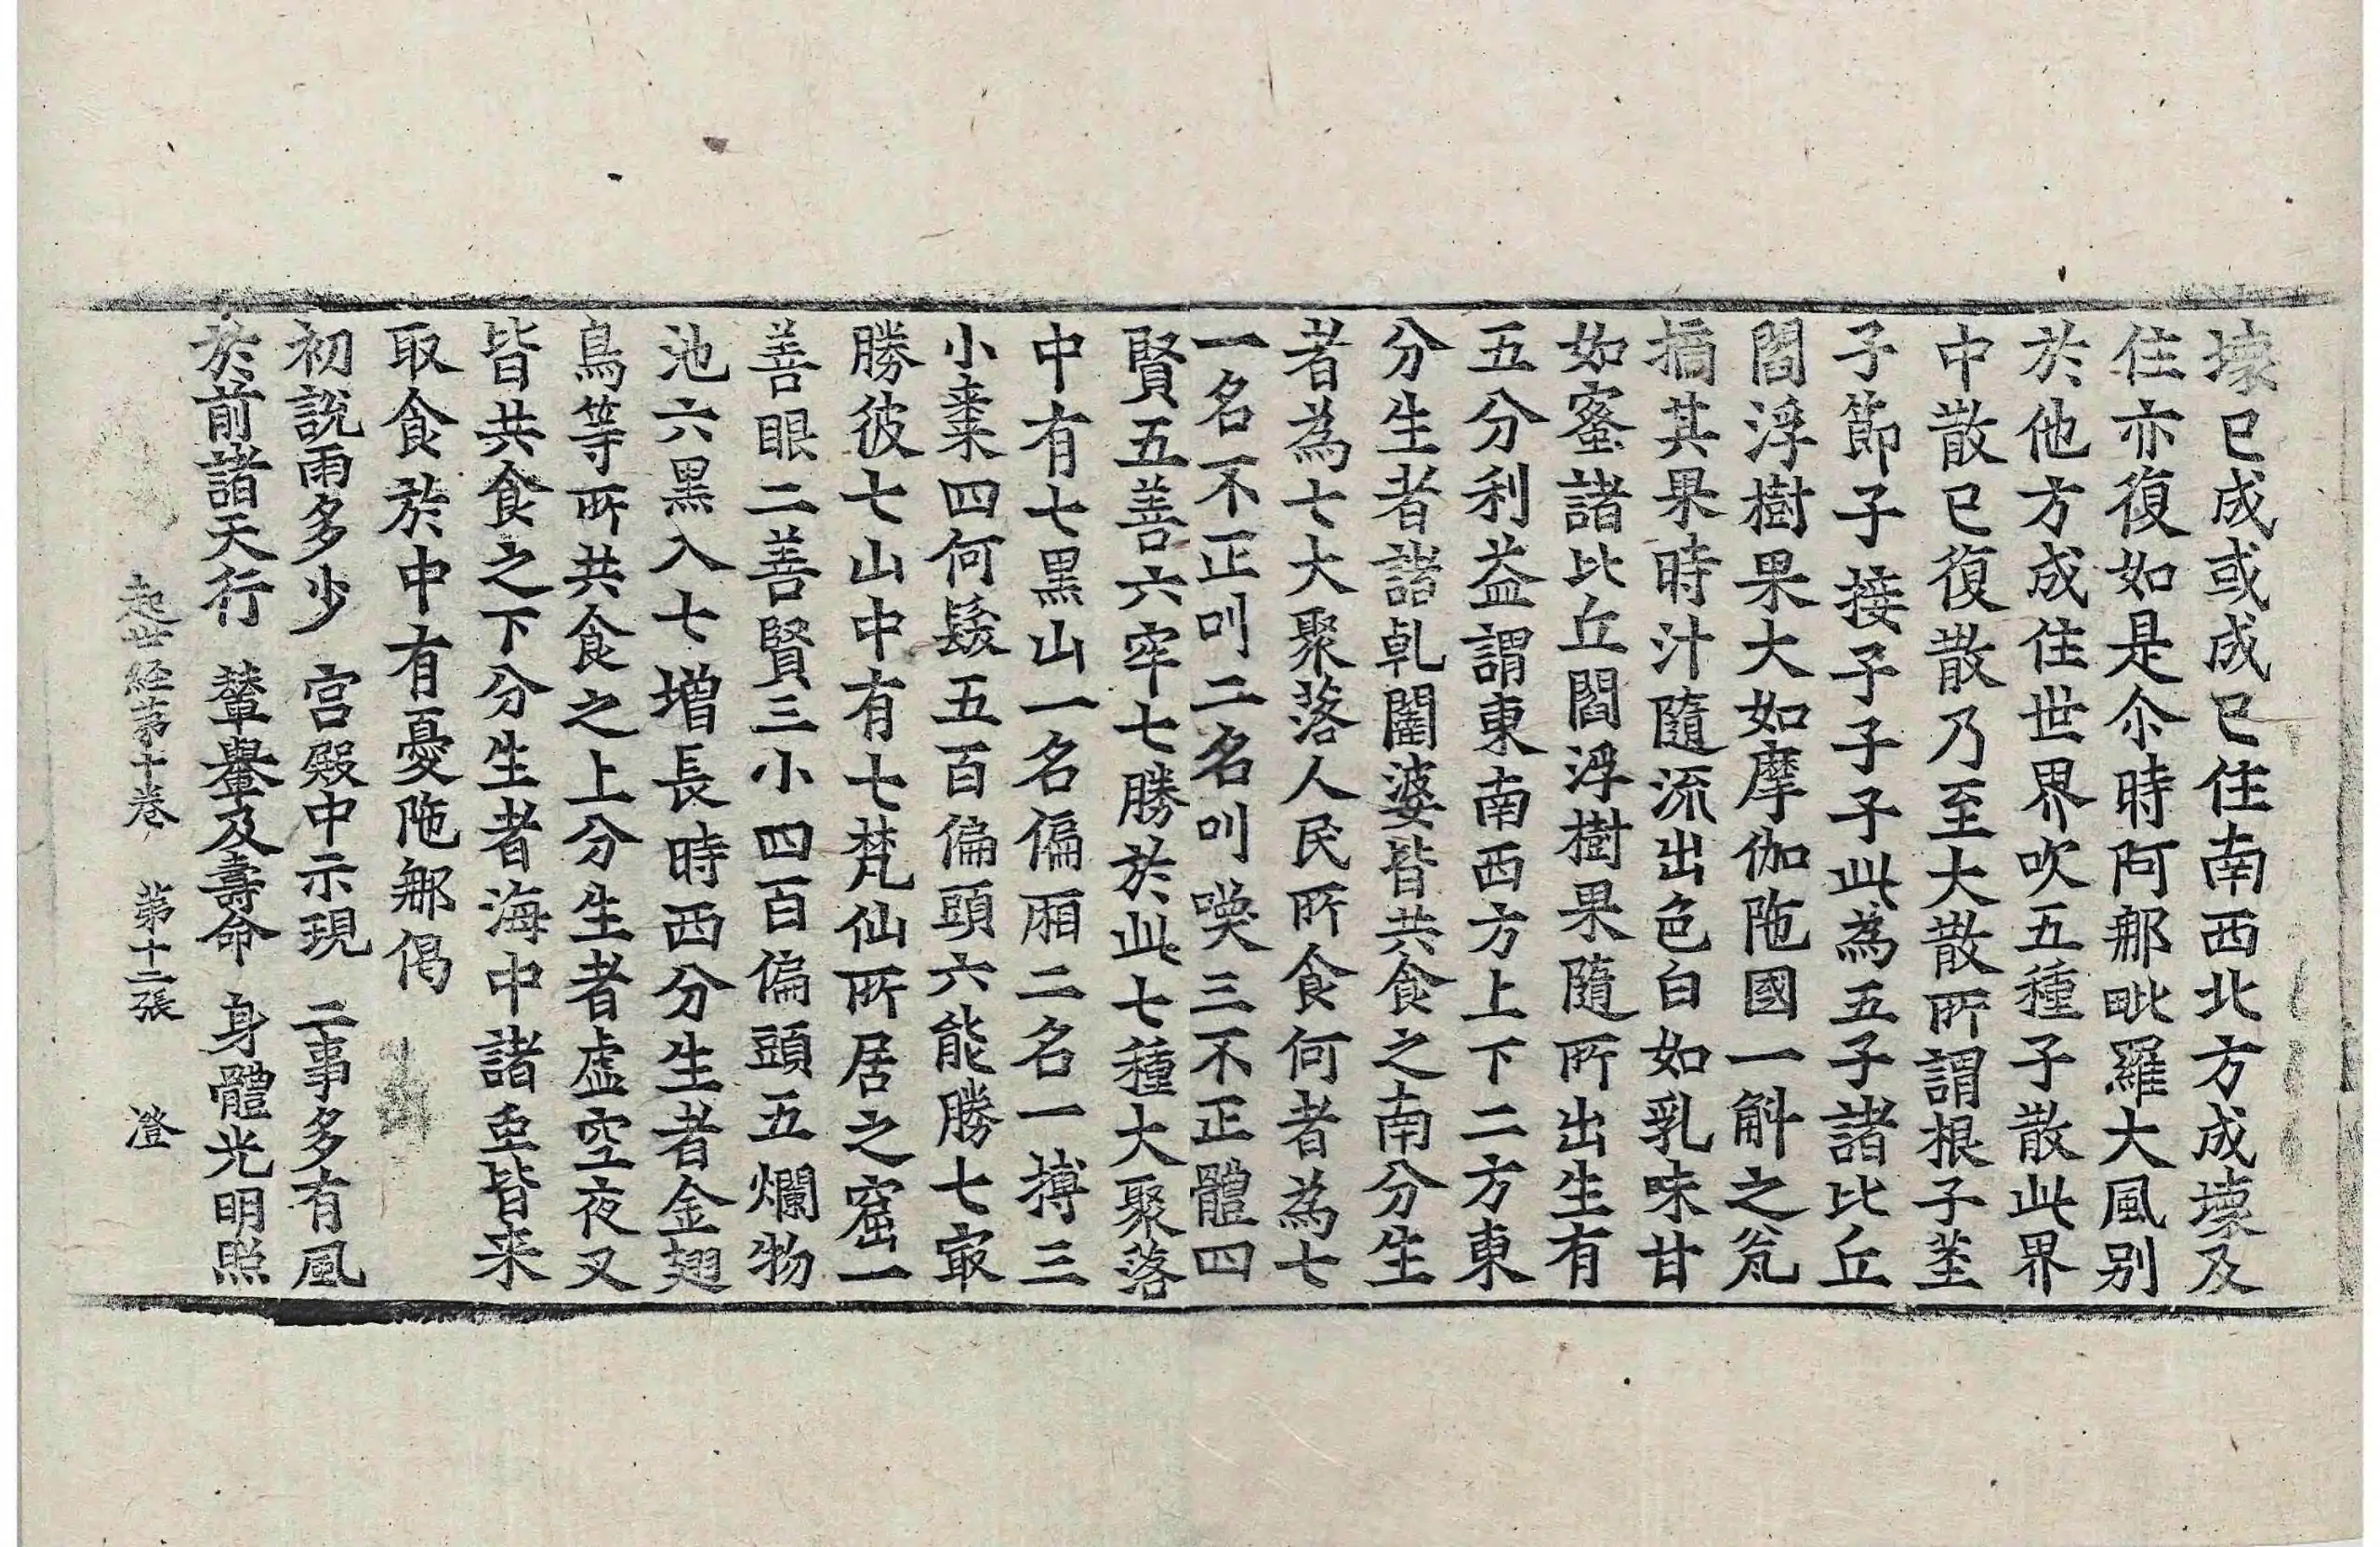 壞已成或成已住南西北方成壞及
住亦復如是尒時阿那毗羅大風别
於他方成住世界吹五種子散此界
中散已復散乃至大散所謂根子莖
子節子接子子子此為五子諸比丘
閻浮樹果大如摩伽陁國一斛之瓮
摘其果時汁隨流出色白如乳味甘
如蜜諸比丘閻浮樹果隨所出生有
五分利益謂東南西方上下二方東
分生者諸乹闥婆皆共食之南分生
者為七大聚落人民所食何者為七
一名不正叫二名叫喚三不正體四
賢五善六牢七勝於此七種大聚落
中有七黒山一名偏厢二名一搏三
小棗四何髮五百偏頭六能勝七㝡
勝彼七山中有七梵仙所居之窟一
善眼二善賢三小四百偏頭五爛物
池六黒入七增長時西分生者金翅
鳥等所共食之上分生者虛空夜叉
皆共食之下分生者海中諸虫皆来
取食於中有憂陁那偈
初說雨多少　宫殿中示現　二事多有風
於前諸天行　輦轝及壽命　身體光明照
起世経第十卷　第十二張　澄